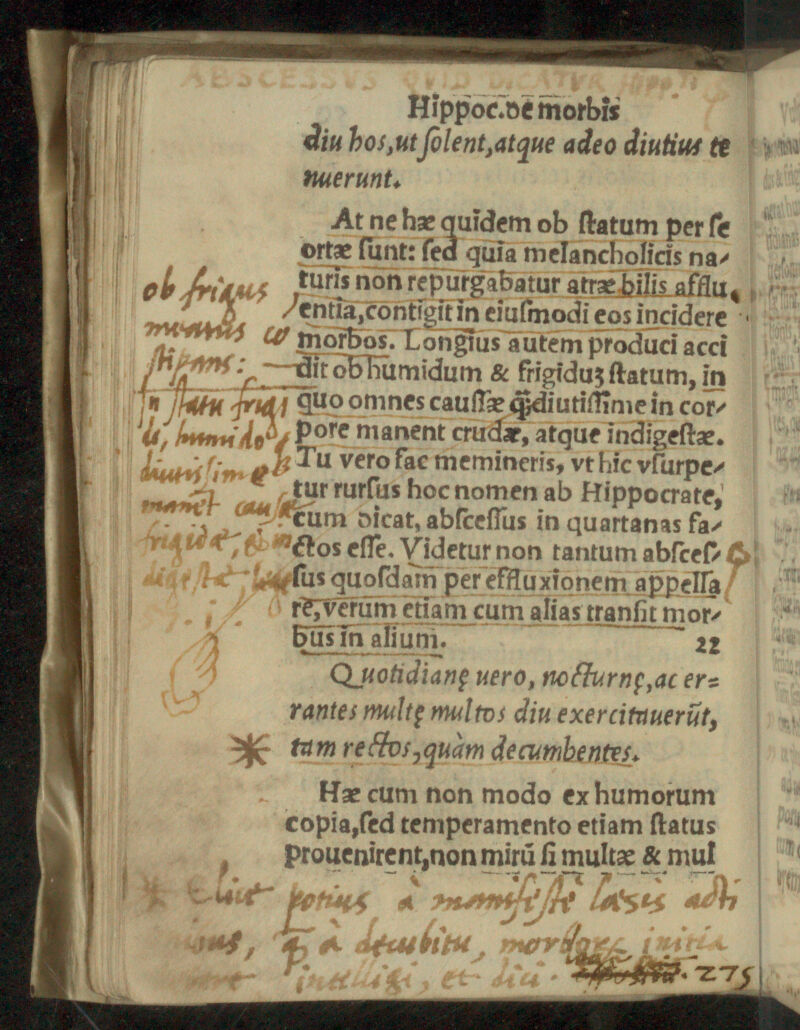 ABSCESSVS QVID DICATVR
Hippoc. de morbis
diu hos, ut ſolent, atque adeo diutius te
nuerunt.
At ne hæ quidem ob ſtatum per ſe
ortæ ſunt: ſed quia melancholicis na-
turis non repurgabatur atræ bilis afflu,
entia, contigit in eiuſmodi eos incidere
morbos. Longius autem produci acci
dit ob humidum & frigiduʒ ſtatum, in
quo omnes cauſſæ q̃;diutiſſime in cor-
pore manent crudæ, atque indigeſtæ.
Tu vero fac memineris, vt hic vſurpe-
tur rurſus hoc nomen ab Hippocrate,
cum dicat, abſceſſus in quartanas fa-
ctos eſſe. Videtur non tantum abſceſ-
ſus quoſdam per effluxionem appella
re, verum etiam cum alias tranſit mor-
bus in alium. 22
Quotidianę uero, nocturnę, ac er=
rantes multę multos diu exercitauerũt,
tam rectos, quàm decumbentes.
Hæ cum non modo ex humorum
copia, ſed temperamento etiam ſtatus
prouenirent, non mirũ ſi multæ & mul
ob frigus
ſtipans:
In ſtatu frigi
manet
potius à manifeſtè læsis acti
à decubitu, initia
intelligi, et dici. 275